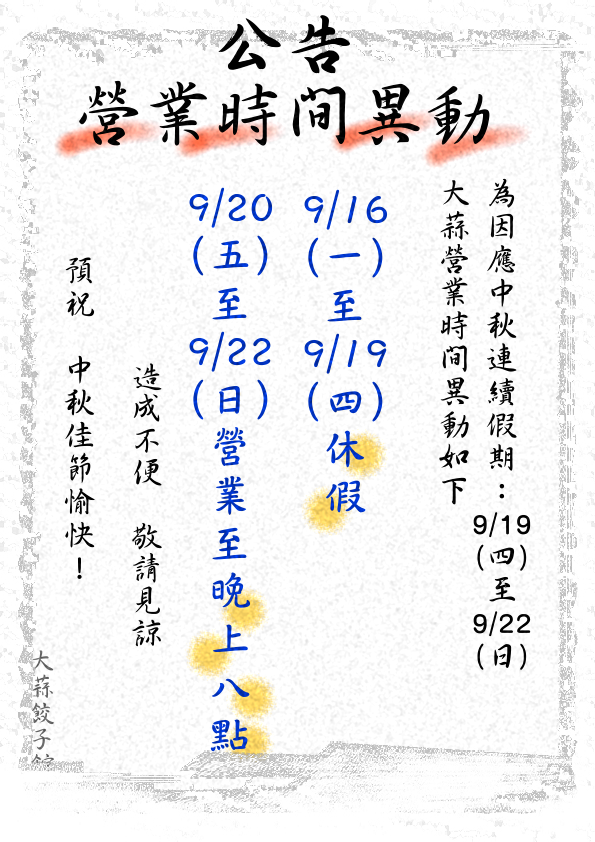 公告
營業時間異動
為因應中秋連續假期：9/19(四)至9/22(日)
大蒜營業時間異動如下
9/16(一)至9/19(四)休假
9/20(五)至9/22(日)營業至晚上八點
造成不便 敬請見諒
預祝 中秋佳節愉快！
大蒜餃子館